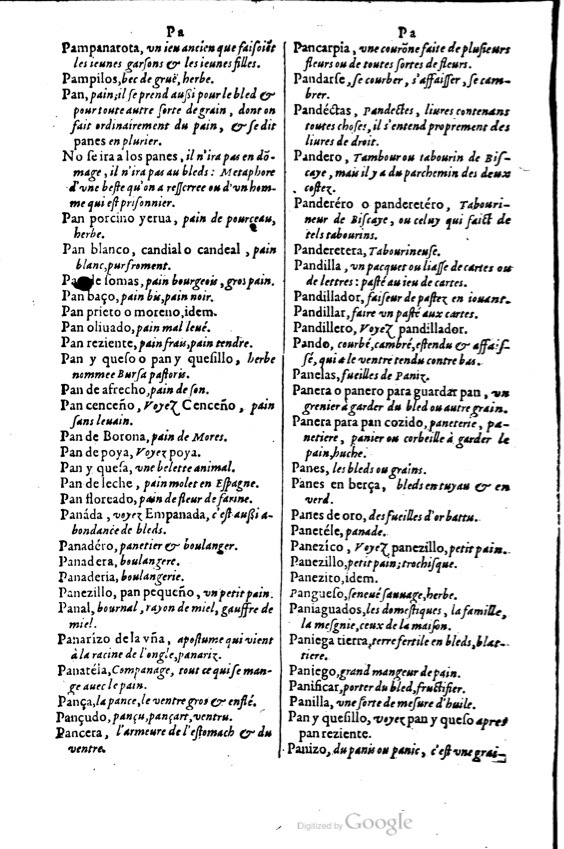 Pa
Pampanarota, vn ieu ancien que faiſoiēt
les ieunes garſons & les ieunes filles.
Pampilos, bec de gruë, herbe.
Pan, pain; il ſe prend auſſi pour le bled &
pour toute autre ſorte de grain, dont on
fait ordinairement du pain, & ſe dit
panes en plurier.
No ſe ira a los panes, il n'ira pas en dō-
mage, il n'ira pas au bleds: Metaphore
d'vne beſte qu'on a reſſerree ou d'vn hom-
me qui eſt priſonnier.
Pan porcino yerua, pain de pourceau,
herbe.
Pan blanco, candial o candeal, pain
blanc, pur froment.
de ſomas, pain bourgeois, gros pain.
Pan baço, pain bis, pain noir.
Pan prieto o moreno, idem.
Pan oliuado, pain mal leué.
Pan reziente, pain frais, pain tendre.
Pan y queſo o pan y queſillo, herbe
nommee Burſa paſtoris.
Pan de afrecho, pain de ſon.
Pan cenceño, Voyez Cenceño, pain
ſans leuain.
Pan de Borona, pain de Mores.
Pan de poya, Voyez poya.
Pan y queſa, vne belette animal.
Pan de leche, pain molet en Eſpagne.
Pan floreado, pain de fleur de farine.
Panáda, voyez Empanada, c'eſt auſſi a-
bondance de bleds.
Panadéro, panetier & boulanger.
Panadera, boulangere.
Panaderia, boulangerie.
Panezillo, pan pequeño, vn petit pain.
Panal, bournal, rayon de miel, gauffre de
miel.
Panarízo de la vña, apoſtume qui vient
à la racine de l'ongle, panariz.
Panatéia, Companage, tout ce qui ſe man-
ge auec le pain.
Pança, la pance, le ventre gros & enflé.
Pançudo, pançu, pançart, ventru.
Pancera, l'armeure de l'eſtomach & du
ventre.
Pa
Pancarpia, vne courōne faite de pluſieurs
fleurs ou de toutes ſortes de fleurs.
Pandarſe, ſe courber, s'affaiſſer, ſe cam-
brer.
Pandéctas, Pandectes, liures contenans
toutes choſes, il s'entend proprement des
liures de droit.
Pandero, Tambour ou tabourin de Biſ-
caye, mais il y a du parchemin des deux
coſtez.
Panderéro o panderetéro, Tabouri-
neur de Biſcaye, ou celuy qui faict de
tels tabourins.
Panderetera, Tabourineuſe.
Pandilla, vn pacquet ou liaſſe de cartes ou
de lettres: paſté au ieu de cartes.
Pandillador, faiſeur de paſtez en iouant.
Pandillar, faire vn paſté aux cartes.
Pandillero, Voyez pandillador.
Pando, courbé, cambré, eſtendu & affaiſ-
ſé, qui a le ventre tendu contre bas.
Panelas, fueilles de Paniz.
Panera o panero para guardar pan, vn
grenier à garder du bled ou autre grain.
Panera para pan cozido, paneterie, pa-
netiere, panier ou corbeille à garder le
pain, huche.
Panes, les bleds ou grains.
Panes en berça, bleds en tuyau & en
verd.
Panes de oro, des fueilles d'or battu.
Panetéle, panade.
Panezíco, Voyez panezillo, petit pain.
Panezillo, petit pain; trochiſque.
Panezito, idem.
Pangueſo, ſeneué ſauuage, herbe.
Paniaguados, les domeſtiques, la famille,
la meſgnie, ceux de la maiſon.
Paniega tierra, terre fertile en bleds, blat-
tiere.
Paniego, grand mangeur de pain.
Panificar, porter du bled, fructifier.
Panilla, vne ſorte de meſure d'huile.
Pan y queſillo, voyez pan y queſo apres
pan reziente.
Panizo, du panis ou panic, c'eſt vne grai-
Digitized by Google